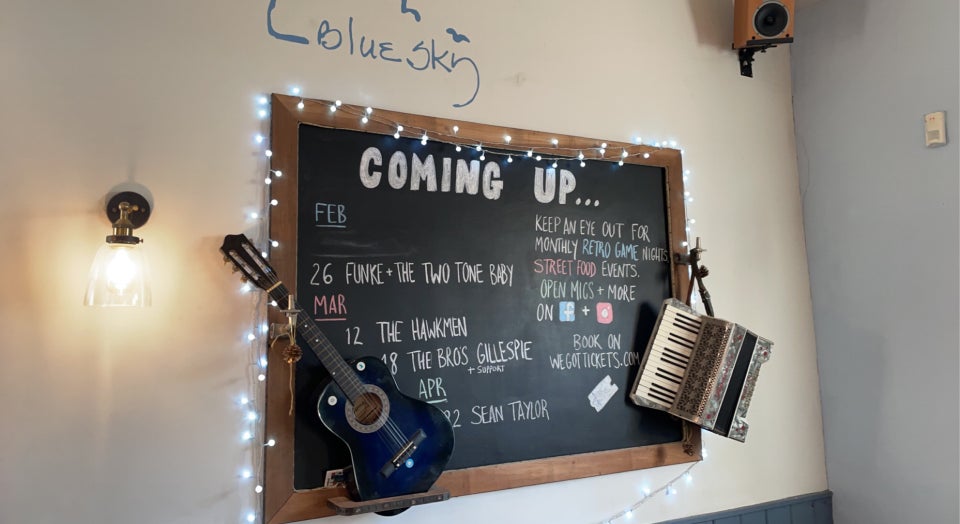 Blue Sky
COMING UP...
FEB
26 FUNKE + THE TWO TONE BABY
MAR
12 THE HAWKMEN
THE BRO'S GILLESPIE
+ SUPPORT
APR
SEAN TAYLOR
KEEP AN EYE OUT FOR
MONTHLY RETRO GAME NIGHTS
STREET FOOD EVENTS.
OPEN MICS + MORE
ON f +
BOOK ON
WEGOTTICKETS.COM